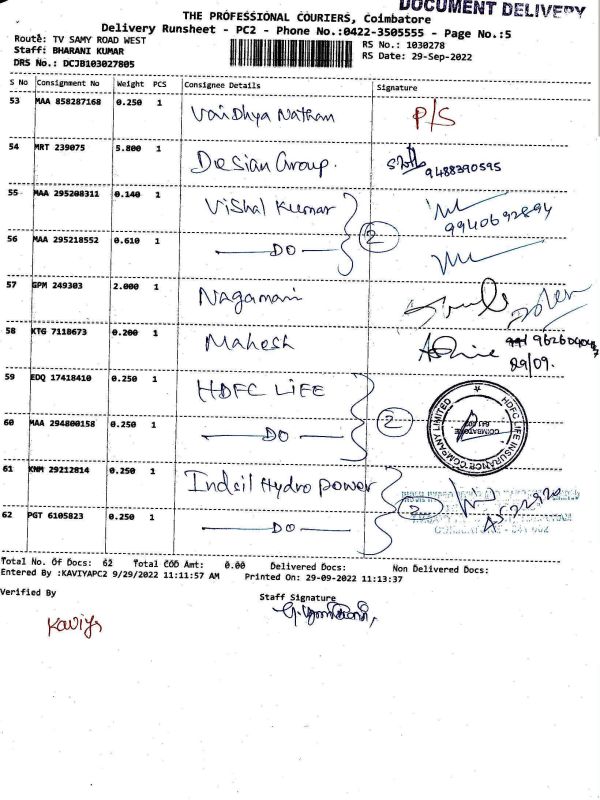 DOCUMENT DELIVERY
THE PROFESSIONAL COURIERS, Coimbatore
Delivery Runsheet - PC2 - Phone No.:0422-3505555 - Page No.:5
Route: TV SAMY ROAD WEST
RS No.: 1030278
Staff: BHARANI KUMAR
RS Date: 29-Sep-2022
DRS No.: DCJB103027805
S No Consignment No Weight PCS Consignee Details Signature
53 MAA 858287168 0.250 1 Vaidhya Nathan P/S
54 MRT 239075 5.800 1 Desian Group. 9488390595
55 MAA 295208311 0.140 1 Vishal Kumar 2 9940692894
56 MAA 295218552 0.610 1 DO
57 GPM 249303 2.000 1 Nagamani
58 KTG 7118673 0.200 1 Mahesh
29/09.
59 EDQ 17418410 0.250 1 HDFC LIFE 2
60 MAA 294800158 0.250 1 DO
HDFC LIFE INSURANCE COMPANY LIMITED
COIMBATORE
61 KNM 29212814 0.250 1 Indsil Hydro power 2
62 PGT 6105823 0.250 1 DO
Total No. Of Docs: 62 Total COD Amt: 0.00 Delivered Docs: Non Delivered Docs:
Entered By :KAVIYAPC2 9/29/2022 11:11:57 AM Printed On: 29-09-2022 11:13:37
Verified By
Staff Signature
Kaviya